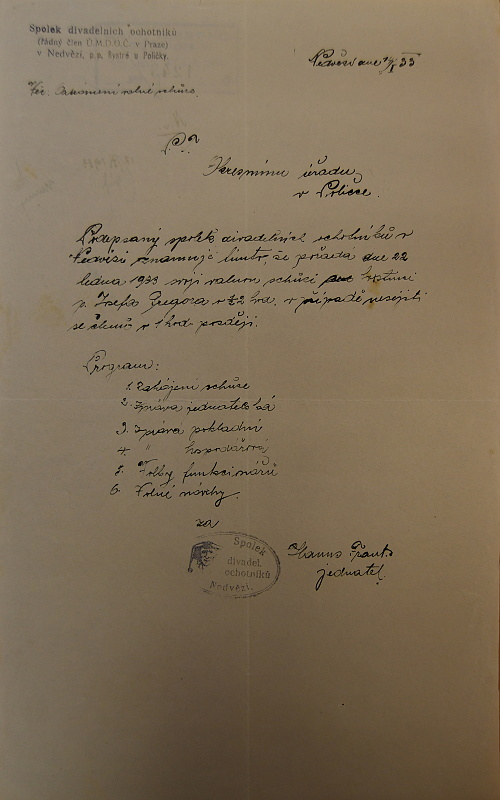 Spolek divadelních ochotníků
(řádný člen Ú.M.D.O.Č. v Praze)
v Nedvězí, p.p. Bystré u Poličky.
Nedvězí dne 33
Věc: Oznámení valné schůze.
P. T.
Okresnímu úřadu
v Poličce.
Podepsaný spolek divadelních ochotníků v
Nedvězí oznamuje tímto že pořádá dne 22
ledna 1933 svoji valnou schůzi hostinci
p. Josefa Gregora v ½2 hod. v případě nesejití
se členů o 1 hod. později.
Program:
1. Zahájení schůze
2. Zpráva jednatelská
3. Zpráva pokladní
4. " hospodářová
5. Volby funkcionářů
6. Volné návrhy.
za
Spolek
divadel.
ochotníků
Nedvězí.
jednatel.